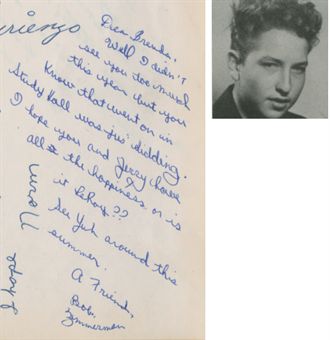 rienzo
Dear Brenda,
Well I didn't
see you too much
this year but you
Know that went on in
Study Hall was jus' kidding.
I hope you and Jerry have
all the happiness or is
it
See Yuh around this
summer.
A Friend,
Bob
Zimmerman